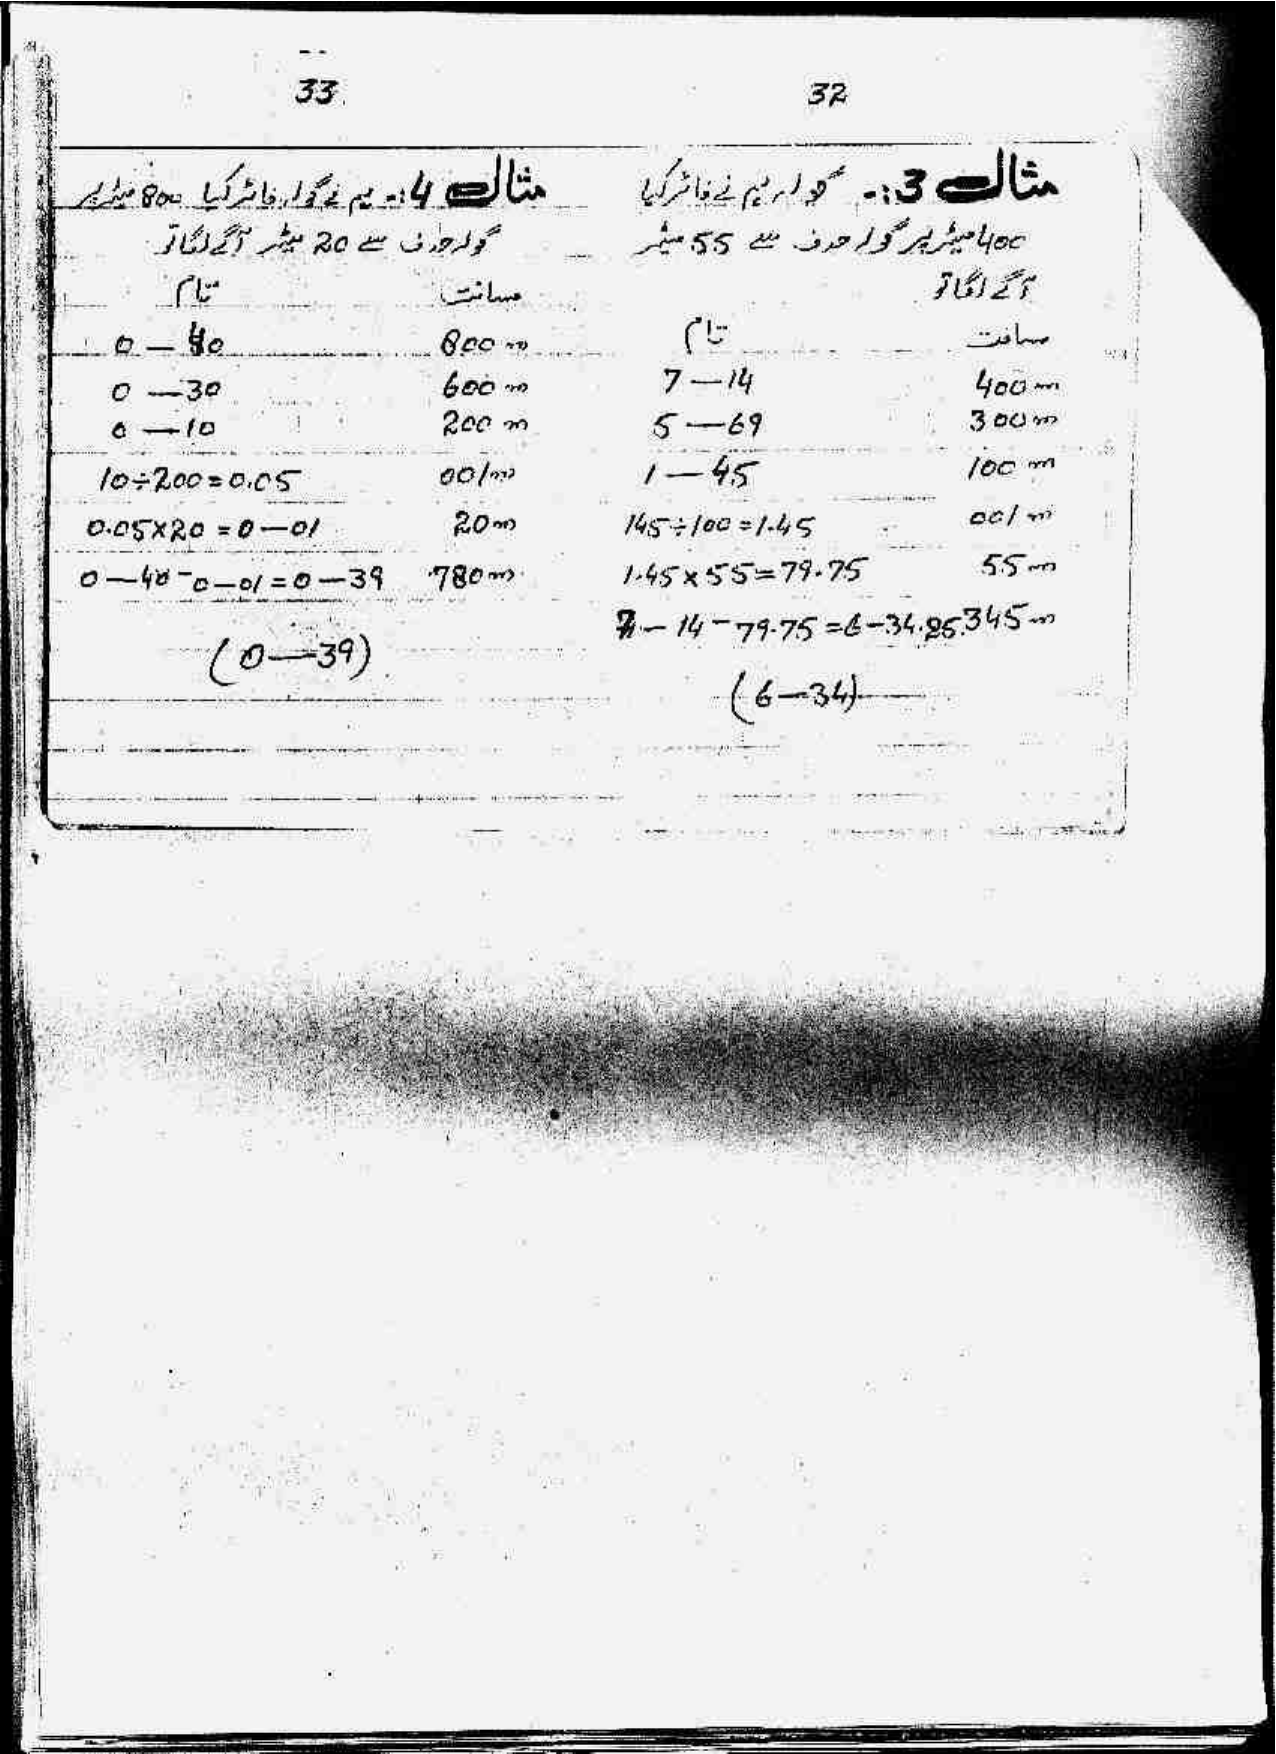 32
مثال 3:- گولہ ہم نے فائر کیا
400 میٹر پر گولہ حدف سے 55 میٹر
آگے لگا تو
مسافت تام
400m 7—14
300m 5—69
100m 1—45
001m 145÷100=1.45
55m 1.45×55=79.75
345m 7—14-79.75=6-34.25
(6—34)
33
مثال 4:- ہم نے گولہ فائر کیا 800 میٹر پر
گولہ حدف سے 20 میٹر آگے لگا تو
مسافت تام
800m 0—40
600m 0—30
200m 0—10
001m 10÷200=0.05
20m 0.05×20=0—01
780m 0—40-0—01=0—39
(0—39)